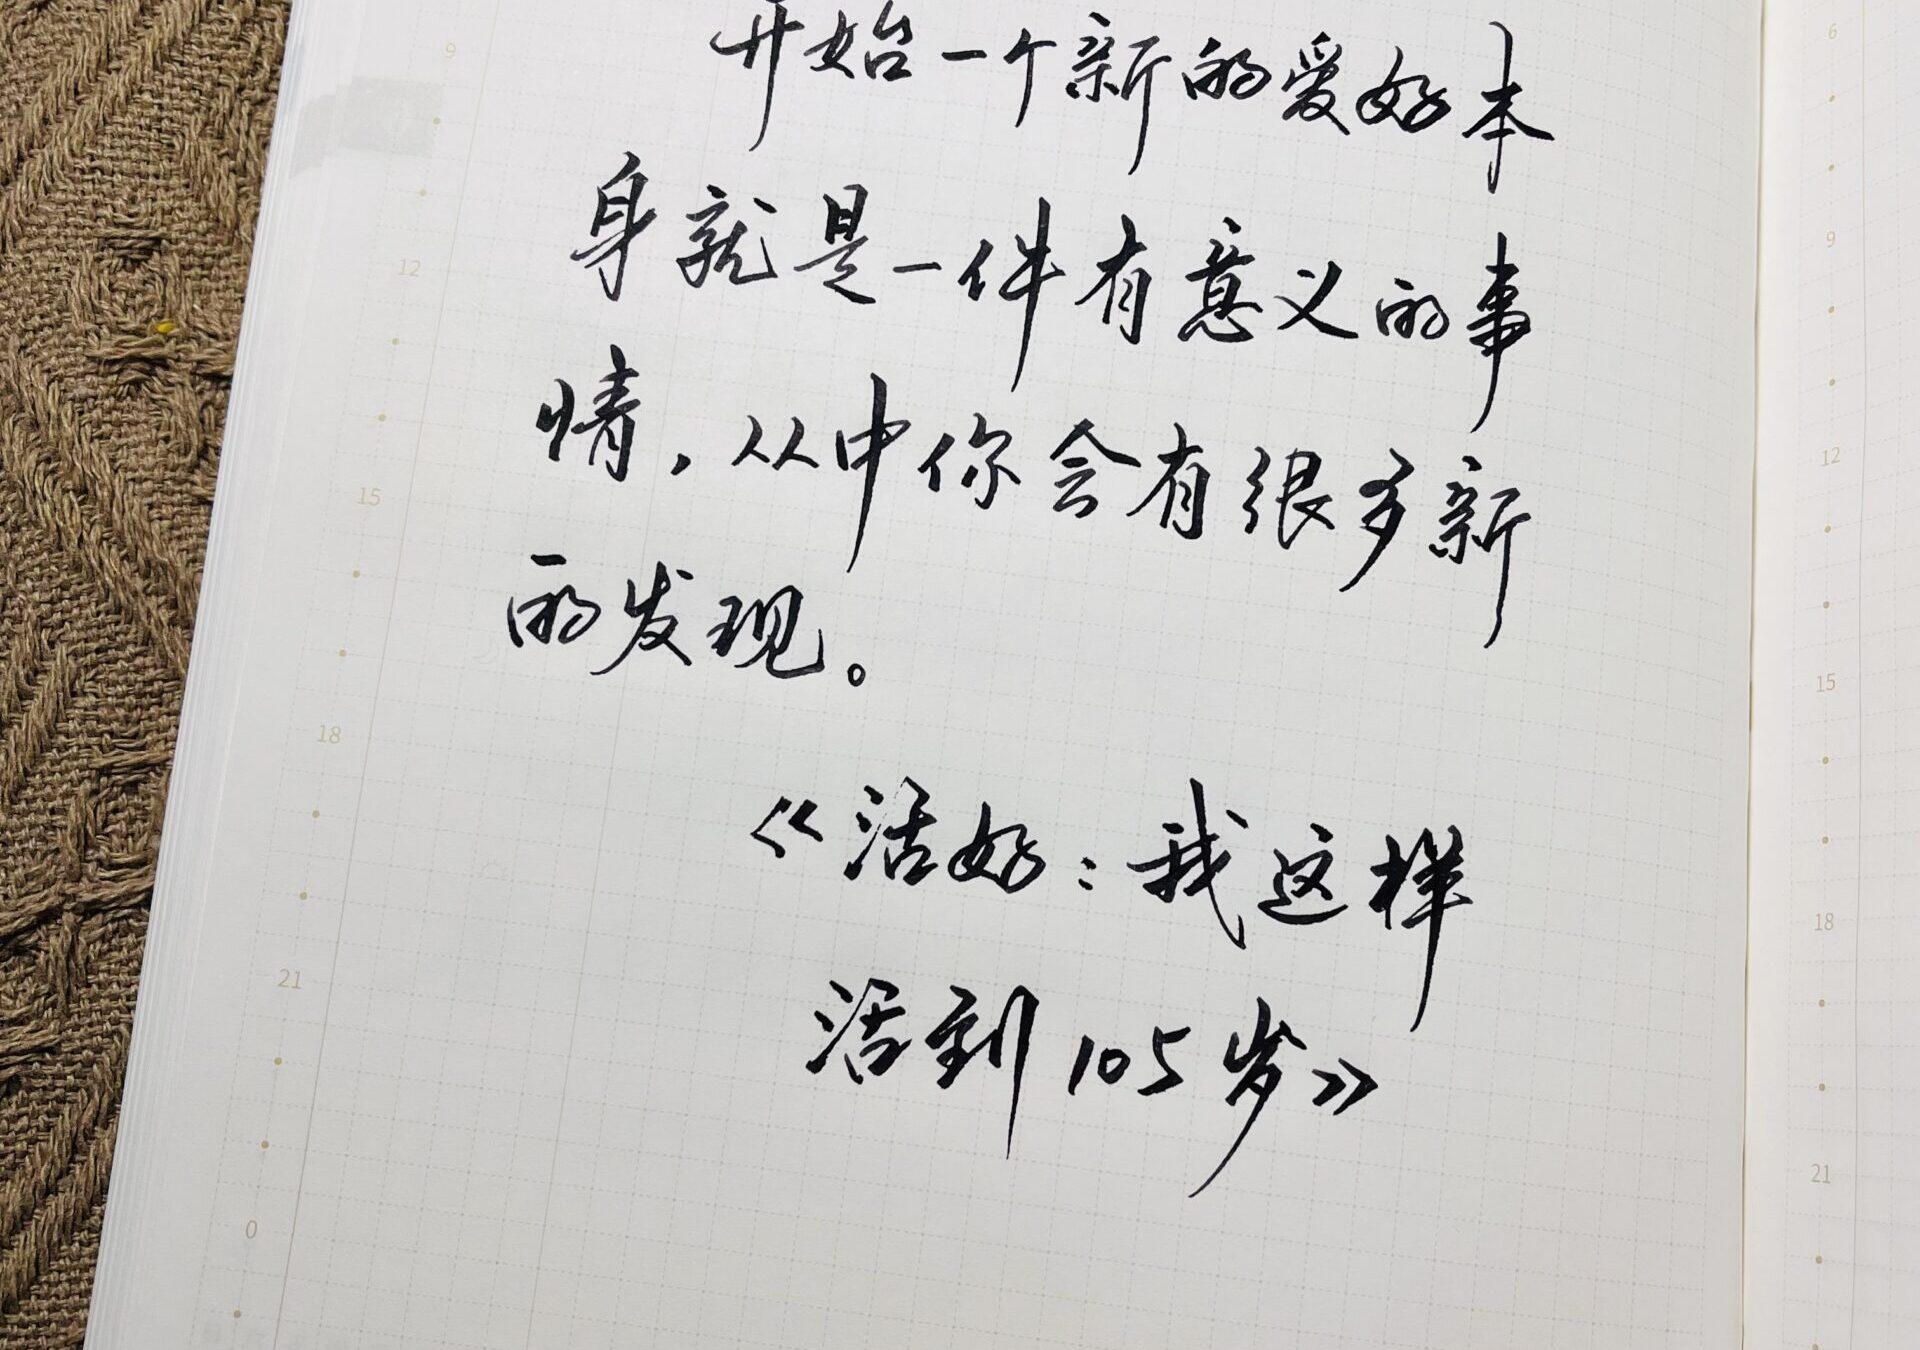 开始一个新的爱好本
身就是一件有意义的事
情，从中你会有很多新
的发现。
《活好：我这样
活到105岁》
9
12
15
18
21
0
6
9
12
15
18
21